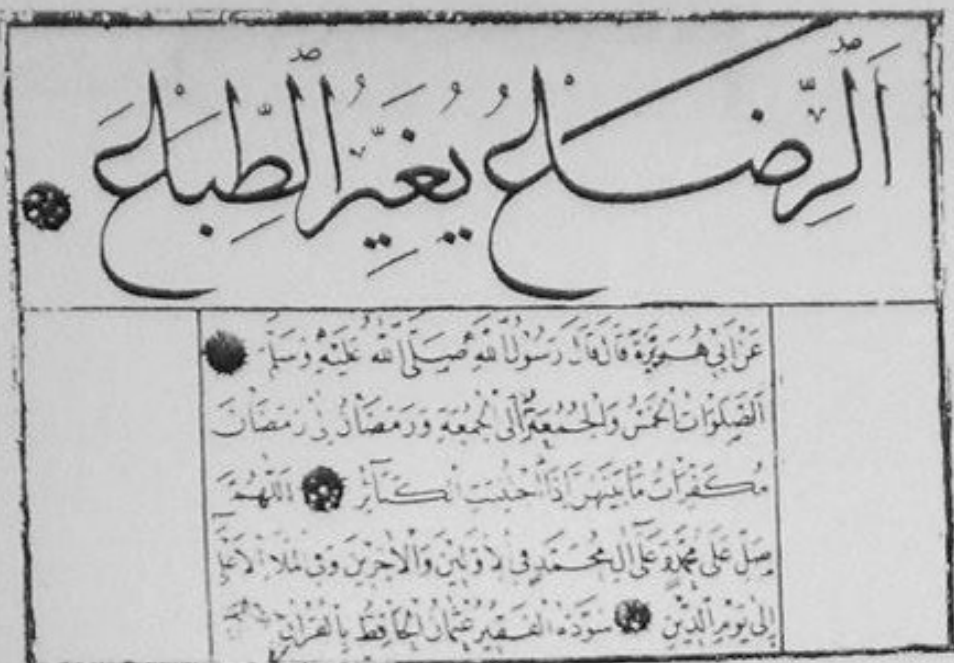 اَلرِّضَاعُ يُغَيِّرُ الطِّبَاعَ
عَنْ اَبِي هُرَيْرَةَ قَالَ قَالَ رَسُولُ اللّٰهِ صَلَّى اللّٰهُ عَلَيْهِ وَسَلَّمَ
اَلصَّلَوَاتُ الْخَمْسُ وَالْجُمُعَةُ اِلَى الْجُمُعَةِ وَرَمَضَانُ اِلَى رَمَضَانَ
مُكَفِّرَاتٌ مَا بَيْنَهُنَّ اِذَا اجْتُنِبَتِ الْكَبَائِرُ اَللّٰهُمَّ
صَلِّ عَلَى مُحَمَّدٍ وَعَلَى اٰلِ مُحَمَّدٍ فِي الْاَوَّلِينَ وَالْاٰخِرِينَ وَفِي الْمَلَاِ الْاَعْلَى
اِلَى يَوْمِ الدِّينِ سَوَّدَهُ الْفَقِيرُ عُثْمَانُ الْحَافِظُ بِالْقُرْاٰنِ